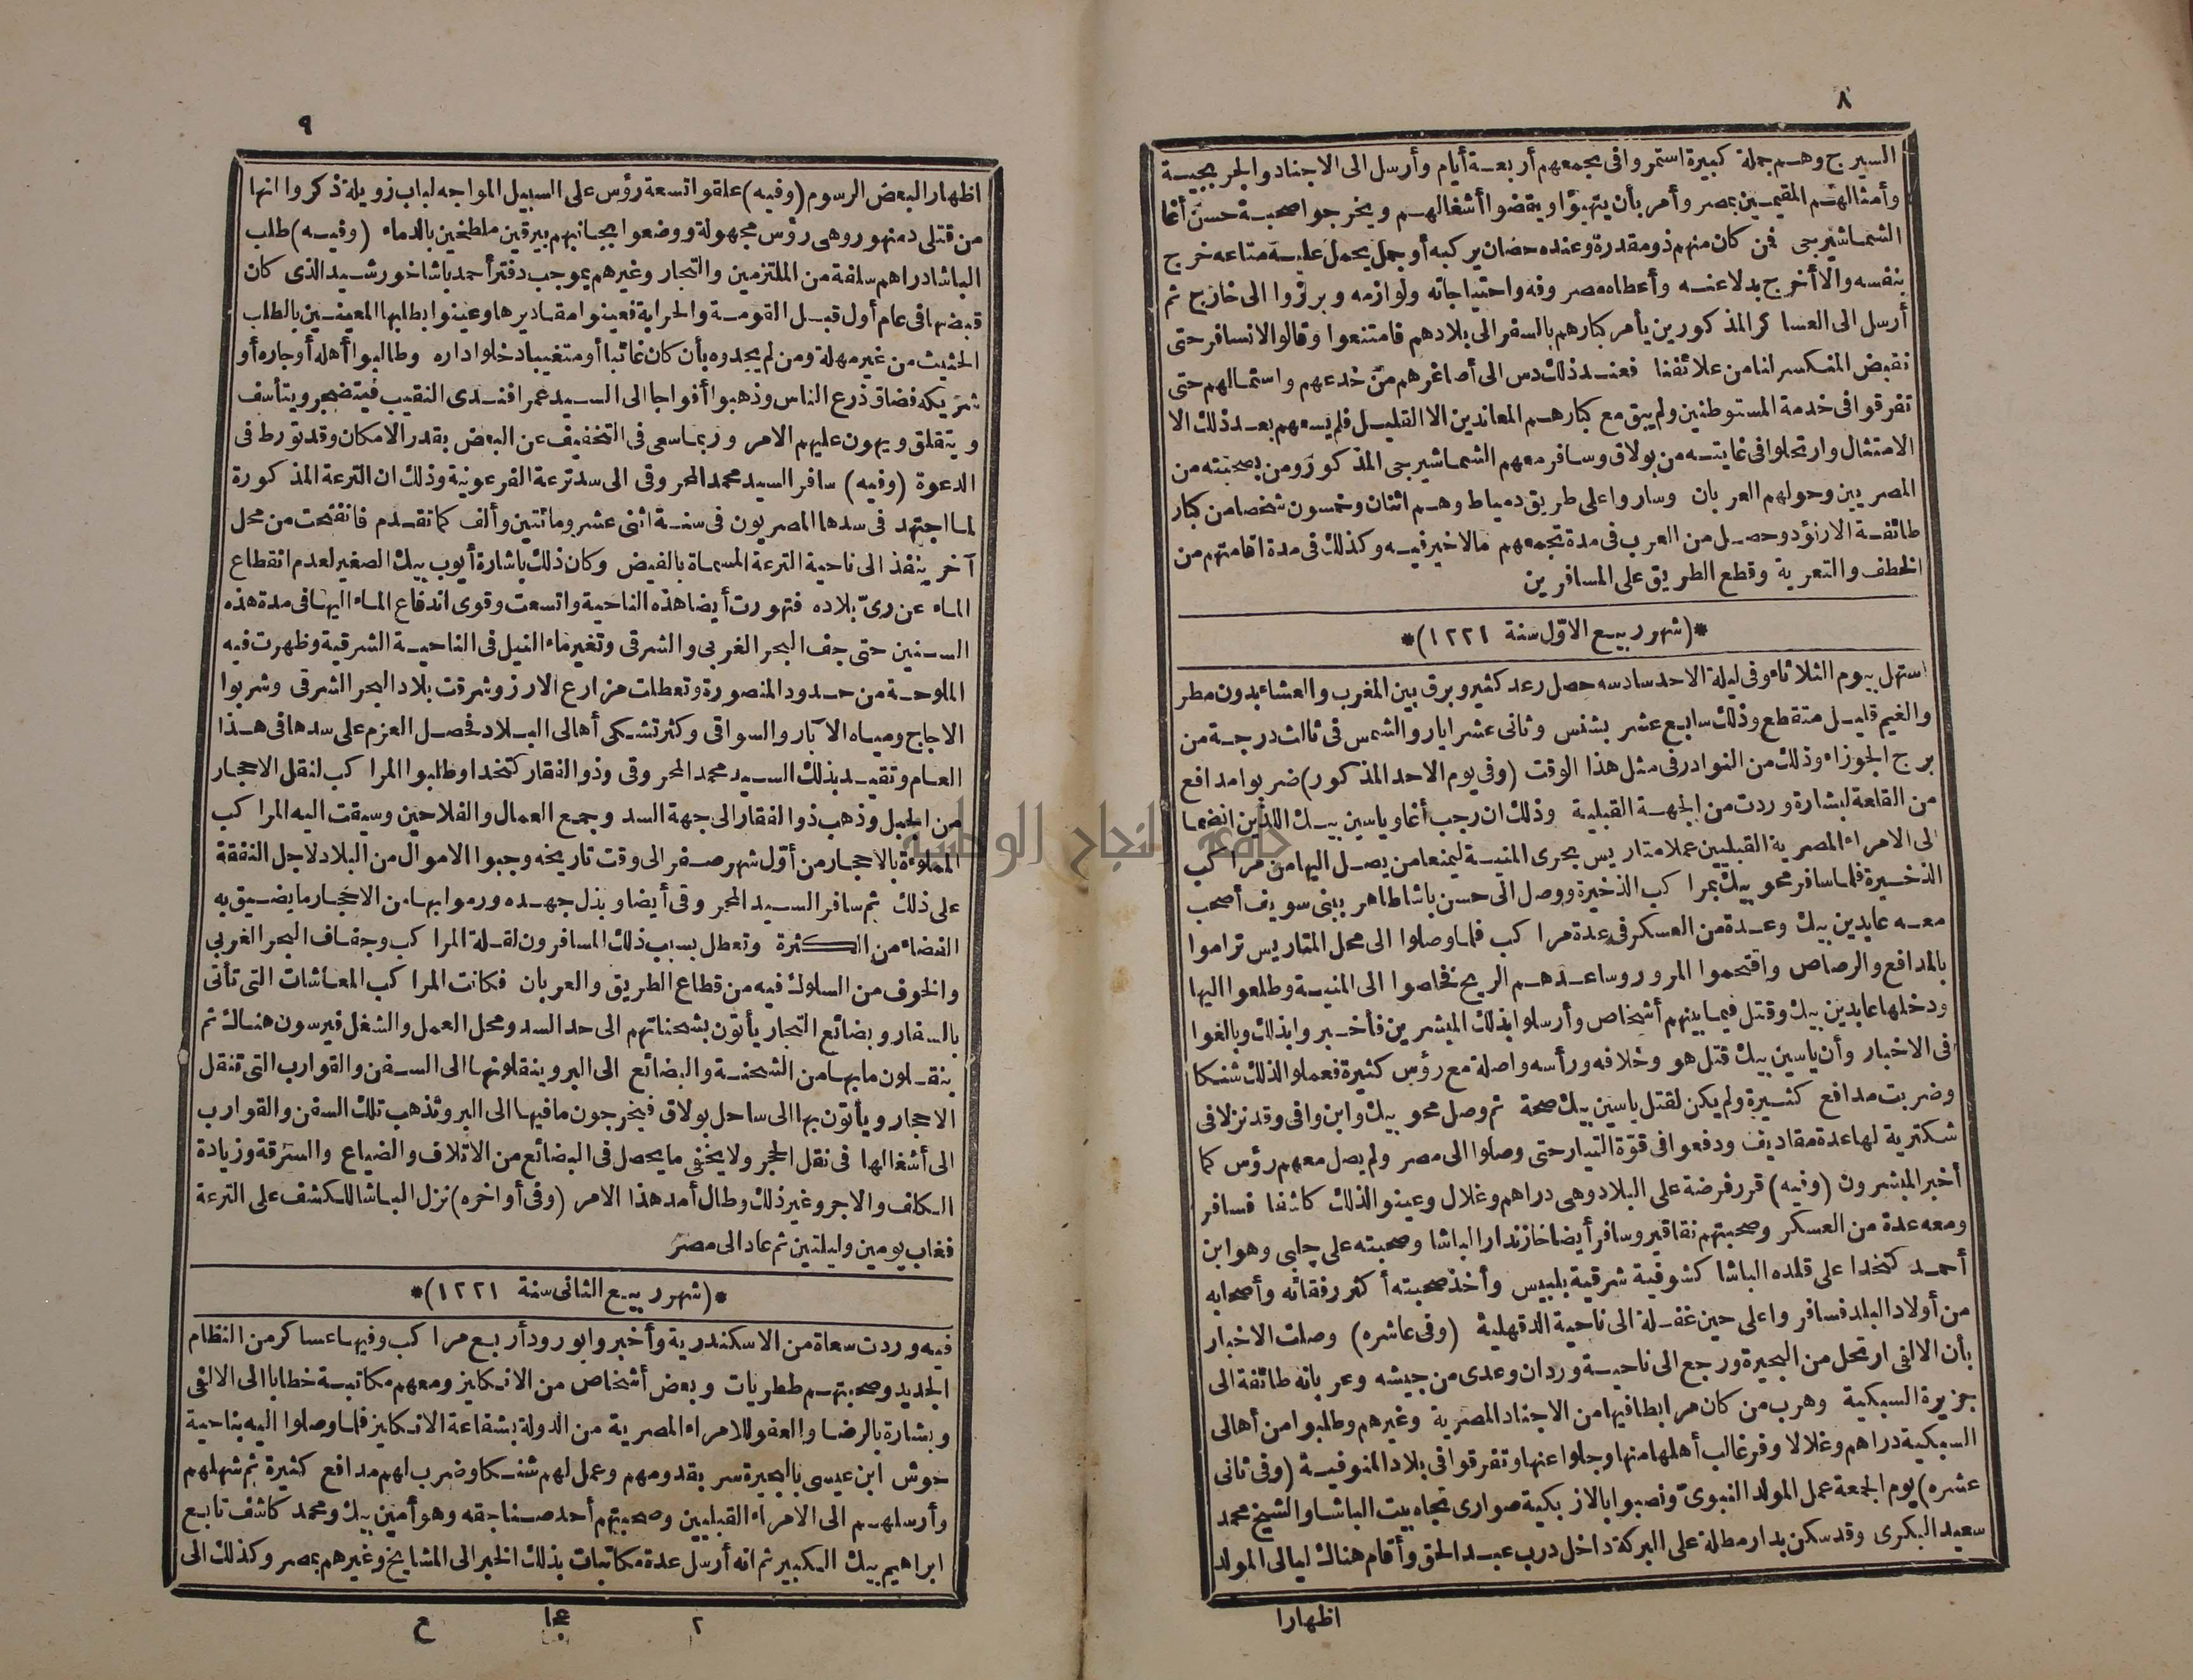 ٨
السيرج وهم جملة كبيرة استمروا فى تجمعهم أربعة أيام وأرسل الى الاجناد والجر بجية
وأمثالهم المقيمين بمصر وأمر بأن يتهيؤا ويقضوا أشغالهم ويخرجوا صحبة حسن أغا
الشماشيرجى فمن كان منهم ذو مقدرة وعنده حصان يركبه أو جمل يحمل عليه متاعه خرج
بنفسه والا أخرج بدلا عنه وأعطاه مصروفه واحتياجاته ولوازمه وبرزوا الى خارج ثم
أرسل الى العساكر المذكورين يأمر كبارهم بالسفر الى بلادهم فامتنعوا وقالوا لا نسافر حتى
نقبض المنكسر لنا من علائفنا فعند ذلك دس الى أصاغرهم من خدعهم واستمالهم حتى
تفرقوا فى خدمة المستوطنين ولم يبق مع كبارهم المعاندين الا القليل فلم يسعهم بعد ذلك الا
الامتثال وارتحلوا فى غايته من بولاق وسافر معهم الشماشيرجى المذكور ومن بصحبته من
المصريين وحولهم العربان وساروا على طريق دمياط وهم اثنان وخمسون شخصا من كبار
طائفة الارنؤد وحصل من العرب فى مدة تجمعهم مالا خير فيه وكذلك فى مدة اقامتهم من
الخطف والتعرية وقطع الطريق على المسافرين
*(شهر ربيع الاوّل سنة ١٢٢١)*
استهل بيوم الثلاثاء وفى ليلة الاحد سادسه حصل رعد كثير وبرق بين المغرب والعشاء بدون مطر
والغيم قليل متقطع وذلك سابع عشر بشنس وثانى عشر ايار والشمس فى ثالث درجة من
برج الجوزاء وذلك من النوادر فى مثل هذا الوقت (وفى يوم الاحد المذكور) ضربوا مدافع
من القلعة لبشارة وردت من الجهة القبلية وذلك ان رجب أغا وياسين بيك اللذين انضما
الى الامراء المصرية القبليين عملا متاريس بحرى المنية ليمنعا من يصل اليها من مراكب
الذخيرة فلما سافر محو بيك بمراكب الذخيرة ووصل الى حسن باشا طاهر ببنى سويف أصحب
معه عابدين بيك وعدة من العسكر فى عدة مراكب فلما وصلوا الى محل المتاريس تراموا
بالمدافع والرصاص واقتحموا المرور وساعدهم الريح فخلصوا الى المنية وطلعوا اليها
ودخلها عابدين بيك وقتل فيما بينهم أشخاص وأرسلوا بذلك المبشرين فأخبروا بذلك وبالغوا
فى الاخبار وأن ياسين بيك قتل هو وخلافه ورأسه واصلة مع رؤس كثيرة فعملوا لذلك شنكا
وضربت مدافع كثيرة ولم يكن لقتل ياسين بيك صحة ثم وصل محو بيك وابن وافى وقد نزلا فى
شكترية لها عدة مقاديف ودفعوا فى قوّة التيار حتى وصلوا الى مصر ولم يصل معهم رؤس كما
أخبر المبشرون (وفيه) قرر فرضة على البلاد وهى دراهم وغلال وعينوا لذلك كاشفا فسافر
ومعه عدة من العسكر وصحبتهم نقاقير وسافر أيضا خازندار الباشا وصحبته على چلبى وهو ابن
أحمد كتخدا على قلده الباشا كشوفية شرقية بلبيس وأخذ صحبته أكثر رفقائه وأصحابه
من أولاد البلد فسافروا على حين غفلة الى ناحية الدقهلية (وفى عاشره) وصلت الاخبار
بأن الالفى ارتحل من البحيرة ورجع الى ناحية وردان وعدى من جيشه وعربانه طائفة الى
جزيرة السبكية وهرب من كان مرابطا فيها من الاجناد المصرية وغيرهم وطلبوا من أهالى
السبكية دراهم وغلالا وفر غالب أهلها منها وجلوا عنها وتفرقوا فى بلاد المنوفية (وفى ثانى
عشره) يوم الجمعة عمل المولد النبوىّ ونصبوا بالازبكية صوارى تجاه بيت الباشا والشيخ محمد
سعيد البكرى وقد سكن بدار مطلة على البركة داخل درب عبد الحق وأقام هناك ليالى المولد
اظهارا
٩
اظهار البعض الرسوم (وفيه) علقوا تسعة رؤس على السبيل المواجه لباب زويلة ذكروا انها
من قتلى دمنهور وهى رؤس مجهولة ووضعوا بجانبهم بيرقين ملطخين بالدماء (وفيه) طلب
الباشا دراهم سلفة من الملتزمين والتجار وغيرهم بموجب دفتر أحمد باشا خورشيد الذى كان
قبضها فى عام أول قبل القومة والحرابة فعينوا مقاديرها وعينوا بطلبها المعينين بالطلب
الحثيث من غير مهلة ومن لم يجدوه بأن كان غائبا أو متغيبا دخلوا داره وطالبوا أهله أو جاره أو
شريكه فضاق ذرع الناس وذهبوا أفواجا الى السيد عمر افندى النقيب فيتضجر ويتأسف
ويتقلق ويهون عليهم الامر وربما سعى فى التخفيف عن البعض بقدر الامكان وقد تورط فى
الدعوة (وفيه) سافر السيد محمد المحروقى الى سد ترعة الفرعونية وذلك ان الترعة المذكورة
لما اجتهد فى سدها المصريون فى سنة اثنى عشر ومائتين وألف كما تقدم فانفتحت من محل
آخر ينفذ الى ناحية الترعة المسماة بالفيض وكان ذلك باشارة أيوب بيك الصغير لعدم انقطاع
الماء عن رىّ بلاده فتهورت أيضا هذه الناحية واتسعت وقوى اندفاع الماء اليها فى مدة هذه
السنين حتى جف البحر الغربى والشرقى وتغير ماء النيل فى الناحية الشرقية وظهرت فيه
الملوحة من حدود المنصورة وتعطلت مزارع الارز وشرقت بلاد البحر الشرقى وشربوا
الاجاج ومياه الآبار والسواقى وكثر تشكى أهالى البلاد فحصل العزم على سدها فى هذا
العام وتقيد بذلك السيد محمد المحروقى وذو الفقار كتخدا وطلبوا المراكب لنقل الاحجار
من الجبل وذهب ذو الفقار الى جهة السد وجمع العمال والفلاحين وسيقت اليه المراكب
المملوءة بالاحجار من أوّل شهر صفر الى وقت تاريخه وجبوا الاموال من البلاد لاجل النفقة
على ذلك ثم سافر السيد المحروقى أيضا وبذل جهده ورموا بها من الاحجار ما يضيق به
الفضاء من الكثرة وتعطل بسبب ذلك المسافرون لقلة المراكب وجفاف البحر الغربى
والخوف من السلوك فيه من قطاع الطريق والعربان فكانت المراكب المعاشات التى تأتى
بالسفار وبضائع التجار يأتون بشحناتهم الى حد السد ومحل العمل والشغل فيرسون هناك ثم
ينقلون ما بها من الشحنة والبضائع الى البر وينقلونها الى السفن والقوارب التى تنقل
الاحجار ويأتون بها الى ساحل بولاق فيخرجون ما فيها الى البر وتذهب تلك السفن والقوارب
الى أشغالها فى نقل الحجر ولا يخفى ما يحصل فى البضائع من الاتلاف والضياع والسرقة وزيادة
الكلف والاجر وغير ذلك وطال أمد هذا الامر (وفى أواخره) نزل الباشا للكشف على الترعة
فغاب يومين وليلتين ثم عاد الى مصر
*(شهر ربيع الثانى سنة ١٢٢١)*
فيه وردت سعاة من الاسكندرية وأخبروا بورود أربع مراكب وفيها عساكر من النظام
الجديد وصحبتهم ططريات وبعض أشخاص من الانكليز ومعهم مكاتبة خطابا الى الالفى
وبشارة بالرضا والعفو للامراء المصرية من الدولة بشفاعة الانكليز فلما وصلوا اليه بناحية
حوش ابن عيسى بالبحيرة سر بقدومهم وعمل لهم شنكا وضرب لهم مدافع كثيرة ثم شهلهم
وأرسلهم الى الامراء القبليين وصحبتهم أحد صناجقه وهو أمين بيك ومحمد كاشف تابع
ابراهيم بيك الكبير ثم انه أرسل عدة مكاتبات بذلك الخبر الى المشايخ وغيرهم بمصر وكذلك الى
٢ عجا ع
جامعة النجاح الوطنية